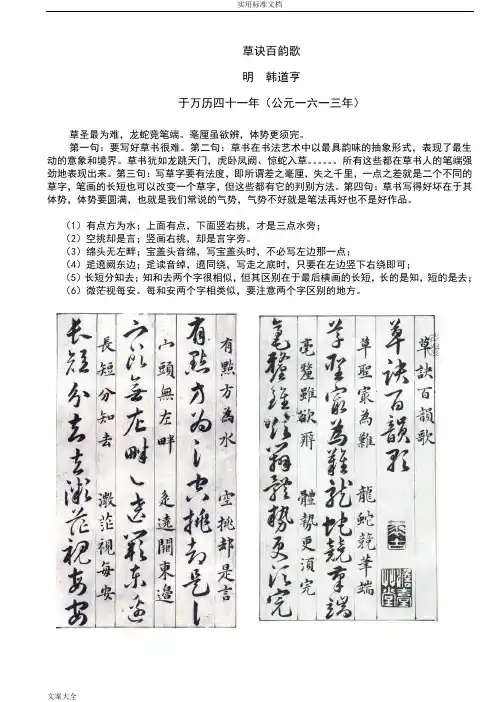 实用标准文档
草诀百韵歌
明 韩道亨
于万历四十一年（公元一六一三年）
草圣最为难，龙蛇竞笔端。毫厘虽欲辨，体势更须完。
第一句：要写好草书很难。第二句：草书在书法艺术中以最具韵味的抽象形式，表现了最生
动的意象和境界。草书犹如龙跳天门，虎卧凤阙、惊蛇入草。。。。。。所有这些都在草书人的笔端强
劲地表现出来。第三句：写草字要有法度，即所谓差之毫厘，失之千里，一点之差就是二个不同的
草字，笔画的长短也可以改变一个草字，但这些都有它的判别方法。第四句：草书写得好坏在于其
体势，体势要圆满，也就是我们常说的气势，气势不好就是笔法再好也不是好作品。
（1）有点方为水；上面有点，下面竖右挑，才是三点水旁；
（2）空挑却是言；竖画右挑，却是言字旁。
（3）绵头无左畔；宝盖头音绵，写宝盖头时、不必写左边那一点；
（4）辵遶阙东边；辵读音绰，遶同绕，写走之底时，只要在左边竖下右绕即可；
（5）长短分知去；知和去两个字很相似，但其区别在于最后横画的长短，长的是知，短的是去；
（6）微茫视每安。每和安两个字相类似，要注意两个字区别的地方。
草訣百韻歌
草訣百韻歌
草聖最為難 龍蛇競筆端
草聖最為難龍蛇競筆端
毫釐雖欲辨 體勢更須完
毫釐雖欲辨體勢更須完
有點方為水 空挑却是言
有點方為氵空挑却是訁
山頭無左畔 辵遶闕東邊
宀頭無左畔辶遶闕東邊
長短分知去 微茫視每安
長短分知去微茫視每安
文案大全